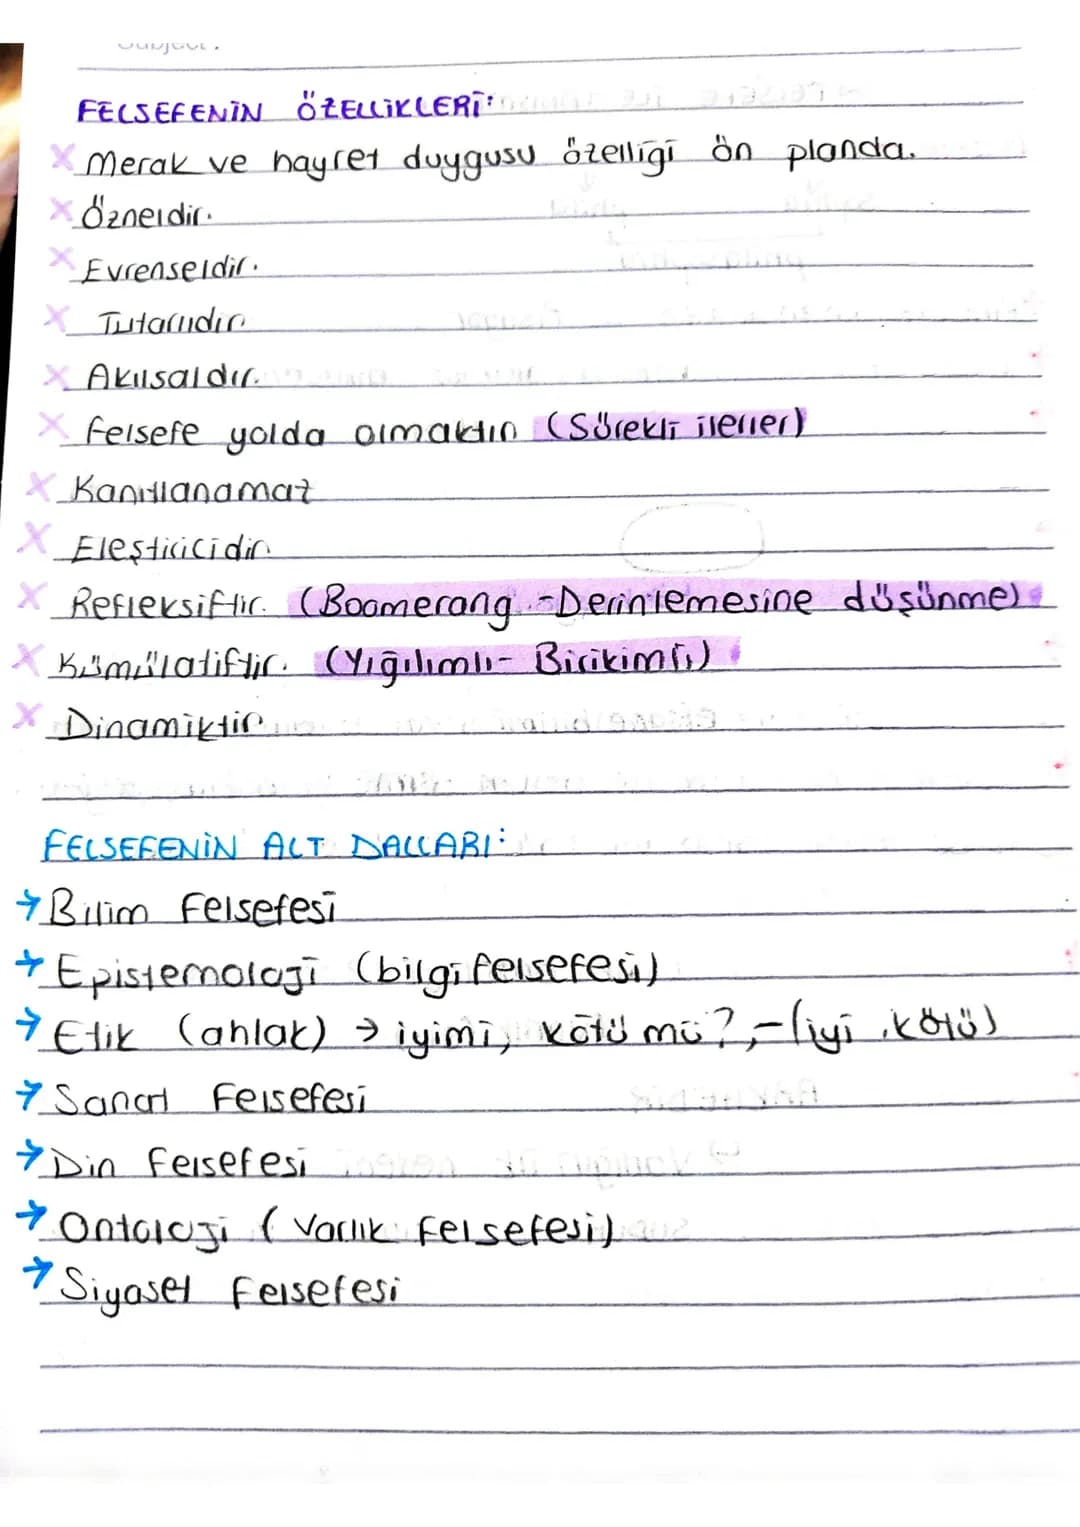 Subject.
FELSEFENİN ÖZELLİKLERİ:
X Merak ve hayret duygusu özelliği ön planda.
X Özneldir.
X Evrenseldir.
X Tutarlıdır
X Akılsaldır.
X Felsefe yolda olmaktır (Sürekli ilerler)
X Kanıtlanamaz
X Eleştiricidir
X Refleksiftir. (Boomerang -Derinlemesine düşünme)
X Kümülatiftir. (Yığılımlı- Birikimli)
X Dinamiktir
FELSEFENİN ALT DALLARI:
→ Bilim Felsefesi
→ Epistemoloji (bilgi felsefesi)
→ Etik (ahlak) → iyimi, kötü mü?,-(iyi,kötü)
→ Sanat Felsefesi
→ Din Felsefesi
→ Ontoloji (Varlık Felsefesi)
→ Siyaset Felsefesi